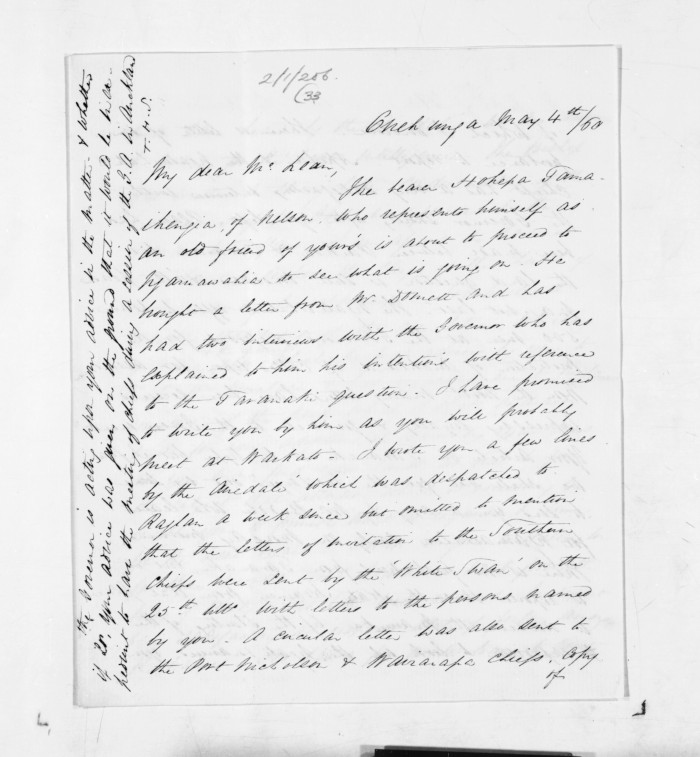 2/1/256.
(33
Onehunga May 4th/60
My dear McLean,
The bearer Hohepa Tama-
ihengia, of Nelson, who represents himself as
an old friend of yours is about to proceed to
Ngaruawahia to see what is going on. He
bought a letter from Mr. Domett and has
had two interviews with the Governor who has
explained to him his intentions with reference
to the Taranaki question. I have promised
to write you by him as you will probably
meet at Waikato. I wrote you a few lines
by the 'Airedale' which was despatched to
Raglan a week since but omitted to mention
that the letters of invitation to the Southern
Chiefs were sent by the 'White Swan' on the
25th ulto. with letters to the persons named
by you. A circular letter was also sent to
the Port Nicholson & Wairarapa Chiefs. Copy
of
The Governor is acting upon your advice in the matter & whether
if so. Your advice was given on the ground that it would be
pedient to have the meeting of Chiefs during a session of the G.A. in Auckland
T. H. S.